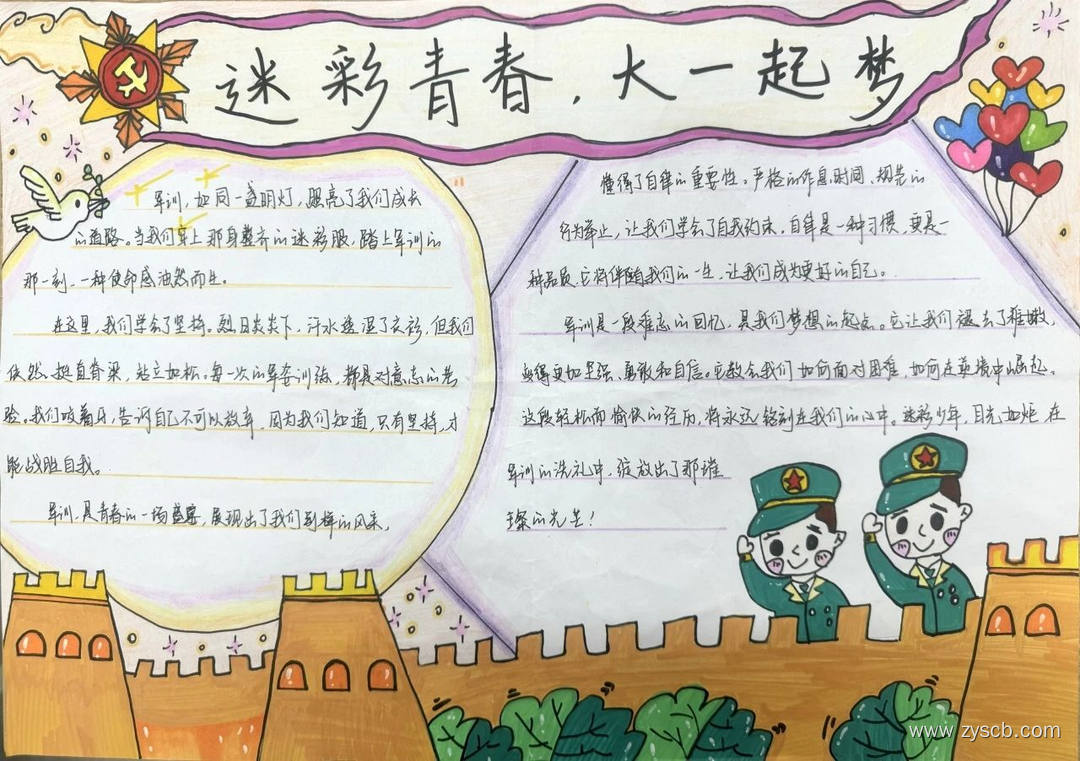 迷彩青春，大一起梦
军训，如同一盏明灯，照亮了我们成长
的道路。当我们穿上那身整齐的迷彩服，踏上军训的
那一刻，一种使命感油然而生。
在这里，我们学会了坚持。烈日炎炎下，汗水浸湿了衣衫，但我们
依然挺直脊梁，站立如松。每一次的军姿训练，都是对意志的考
验。我们咬着牙，告诉自己不可以放弃，因为我们知道，只有坚持，才
能战胜自我。
军训，是青春的一场盛宴，展现出了我们别样的风采，
懂得了自律的重要性。严格的作息时间、规范的
行为举止，让我们学会了自我约束。自律是一种习惯，更是一
种品质，它将伴随我们的一生，让我们成为更好的自己。
军训是一段难忘的回忆，是我们梦想的起点。它让我们褪去了稚嫩，
变得更加坚强、勇敢和自信。它教会我们如何面对困难，如何在逆境中崛起。
这段轻松而愉快的经历，将永远铭刻在我们的心中。迷彩少年，目光如炬，在
军训的洗礼中，绽放出了那璀
璨的光芒！
www.zyscb.com